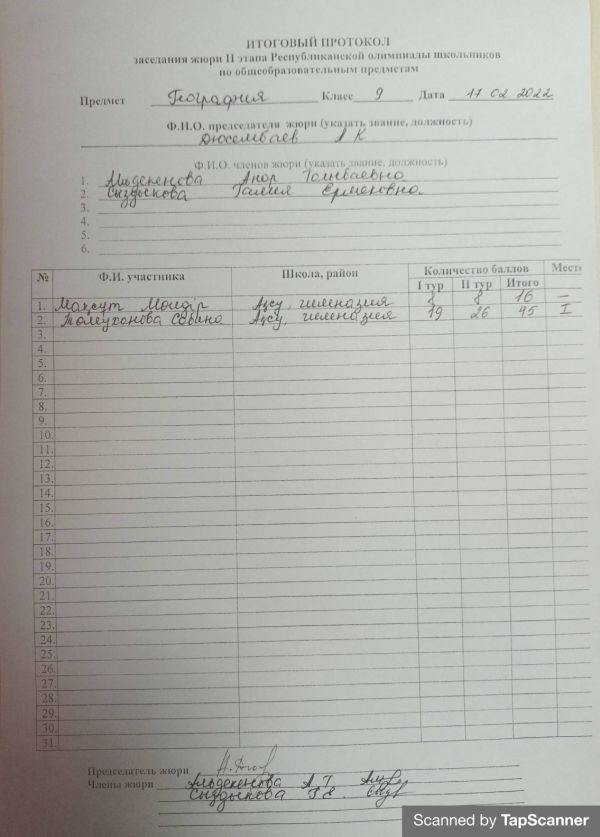 ИТОГОВЫЙ ПРОТОКОЛ
заседания жюри II этапа Республиканской олимпиады школьников
по общеобразовательным предметам
Предмет География Класс 9 Дата 17 02 2022
Ф.И.О. председателя жюри (указать звание, должность)
Дюсембаев А К
Ф.И.О. членов жюри (указать звание, должность)
1. Альдекенова Анар
2. Сыздыкова Галия Ермековна
3.
4.
5.
6.
№ Ф.И. участника Школа, район Количество баллов Место
I тур II тур Итого
1. Мақсут Молдір Ақсу, гимназия 8 8 16 –
2. Толеуханова Сабина Ақсу, гимназия 19 26 45 I
3.
4.
5.
6.
7.
8.
9.
10.
11.
12.
13.
14.
15.
16.
17.
18.
19.
20.
21.
22.
23.
24.
25.
26.
27.
28.
29.
30.
31.
Председатель жюри
Члены жюри Альдекенова А. Т.
Сыздыкова Г. Е.
Scanned by TapScanner